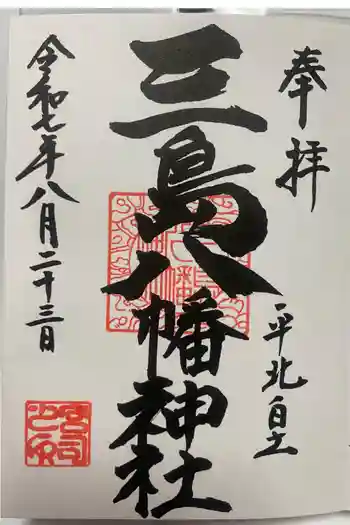 奉拝
平北自土
三島八幡神社
令和七年八月二十三日